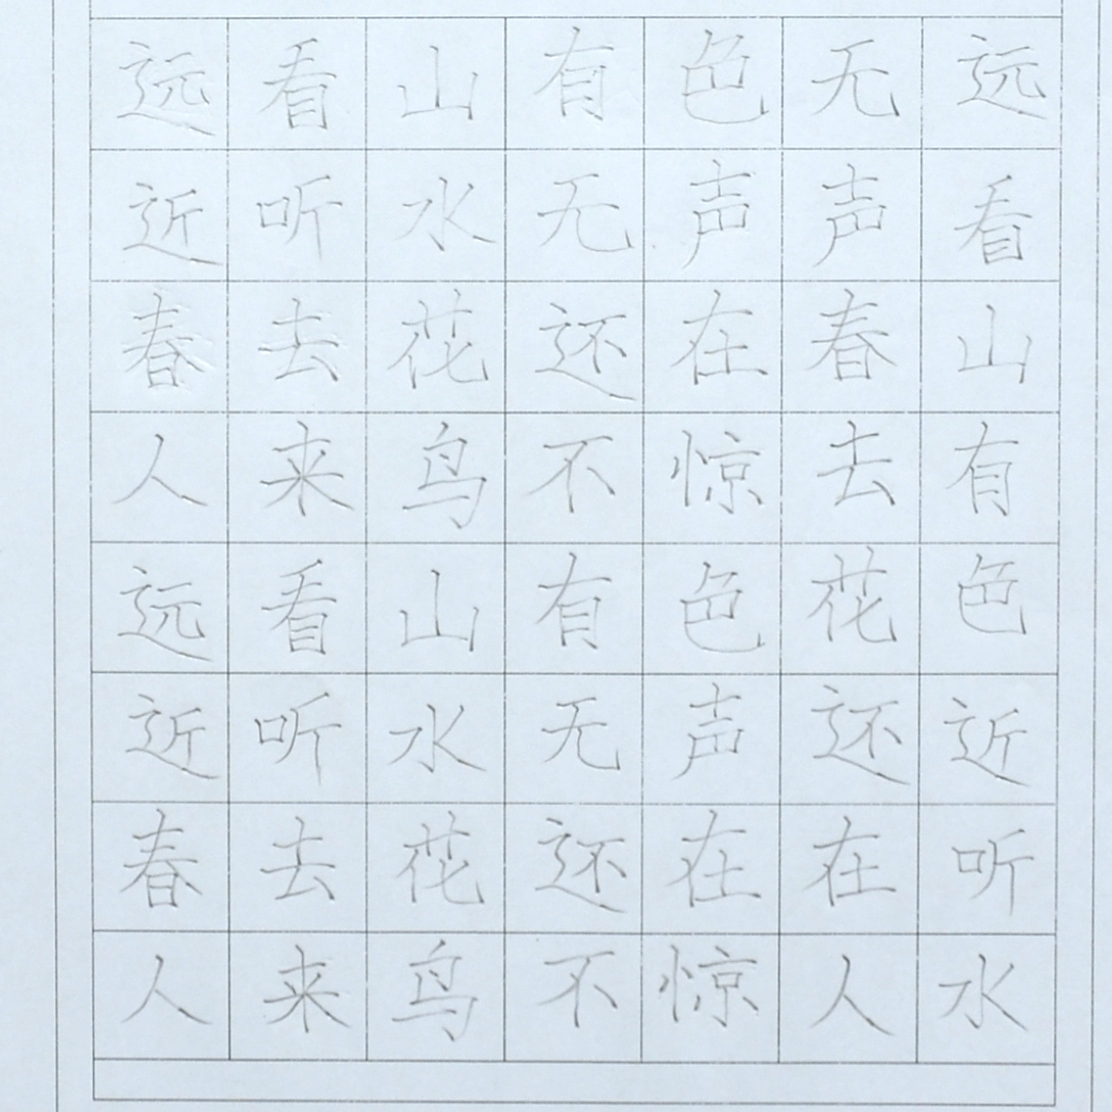 远看山有色无远
近听水无声声看
春去花还在春山
人来鸟不惊去有
远看山有色花色
近听水无声还近
春去花还在在听
人来鸟不惊人水